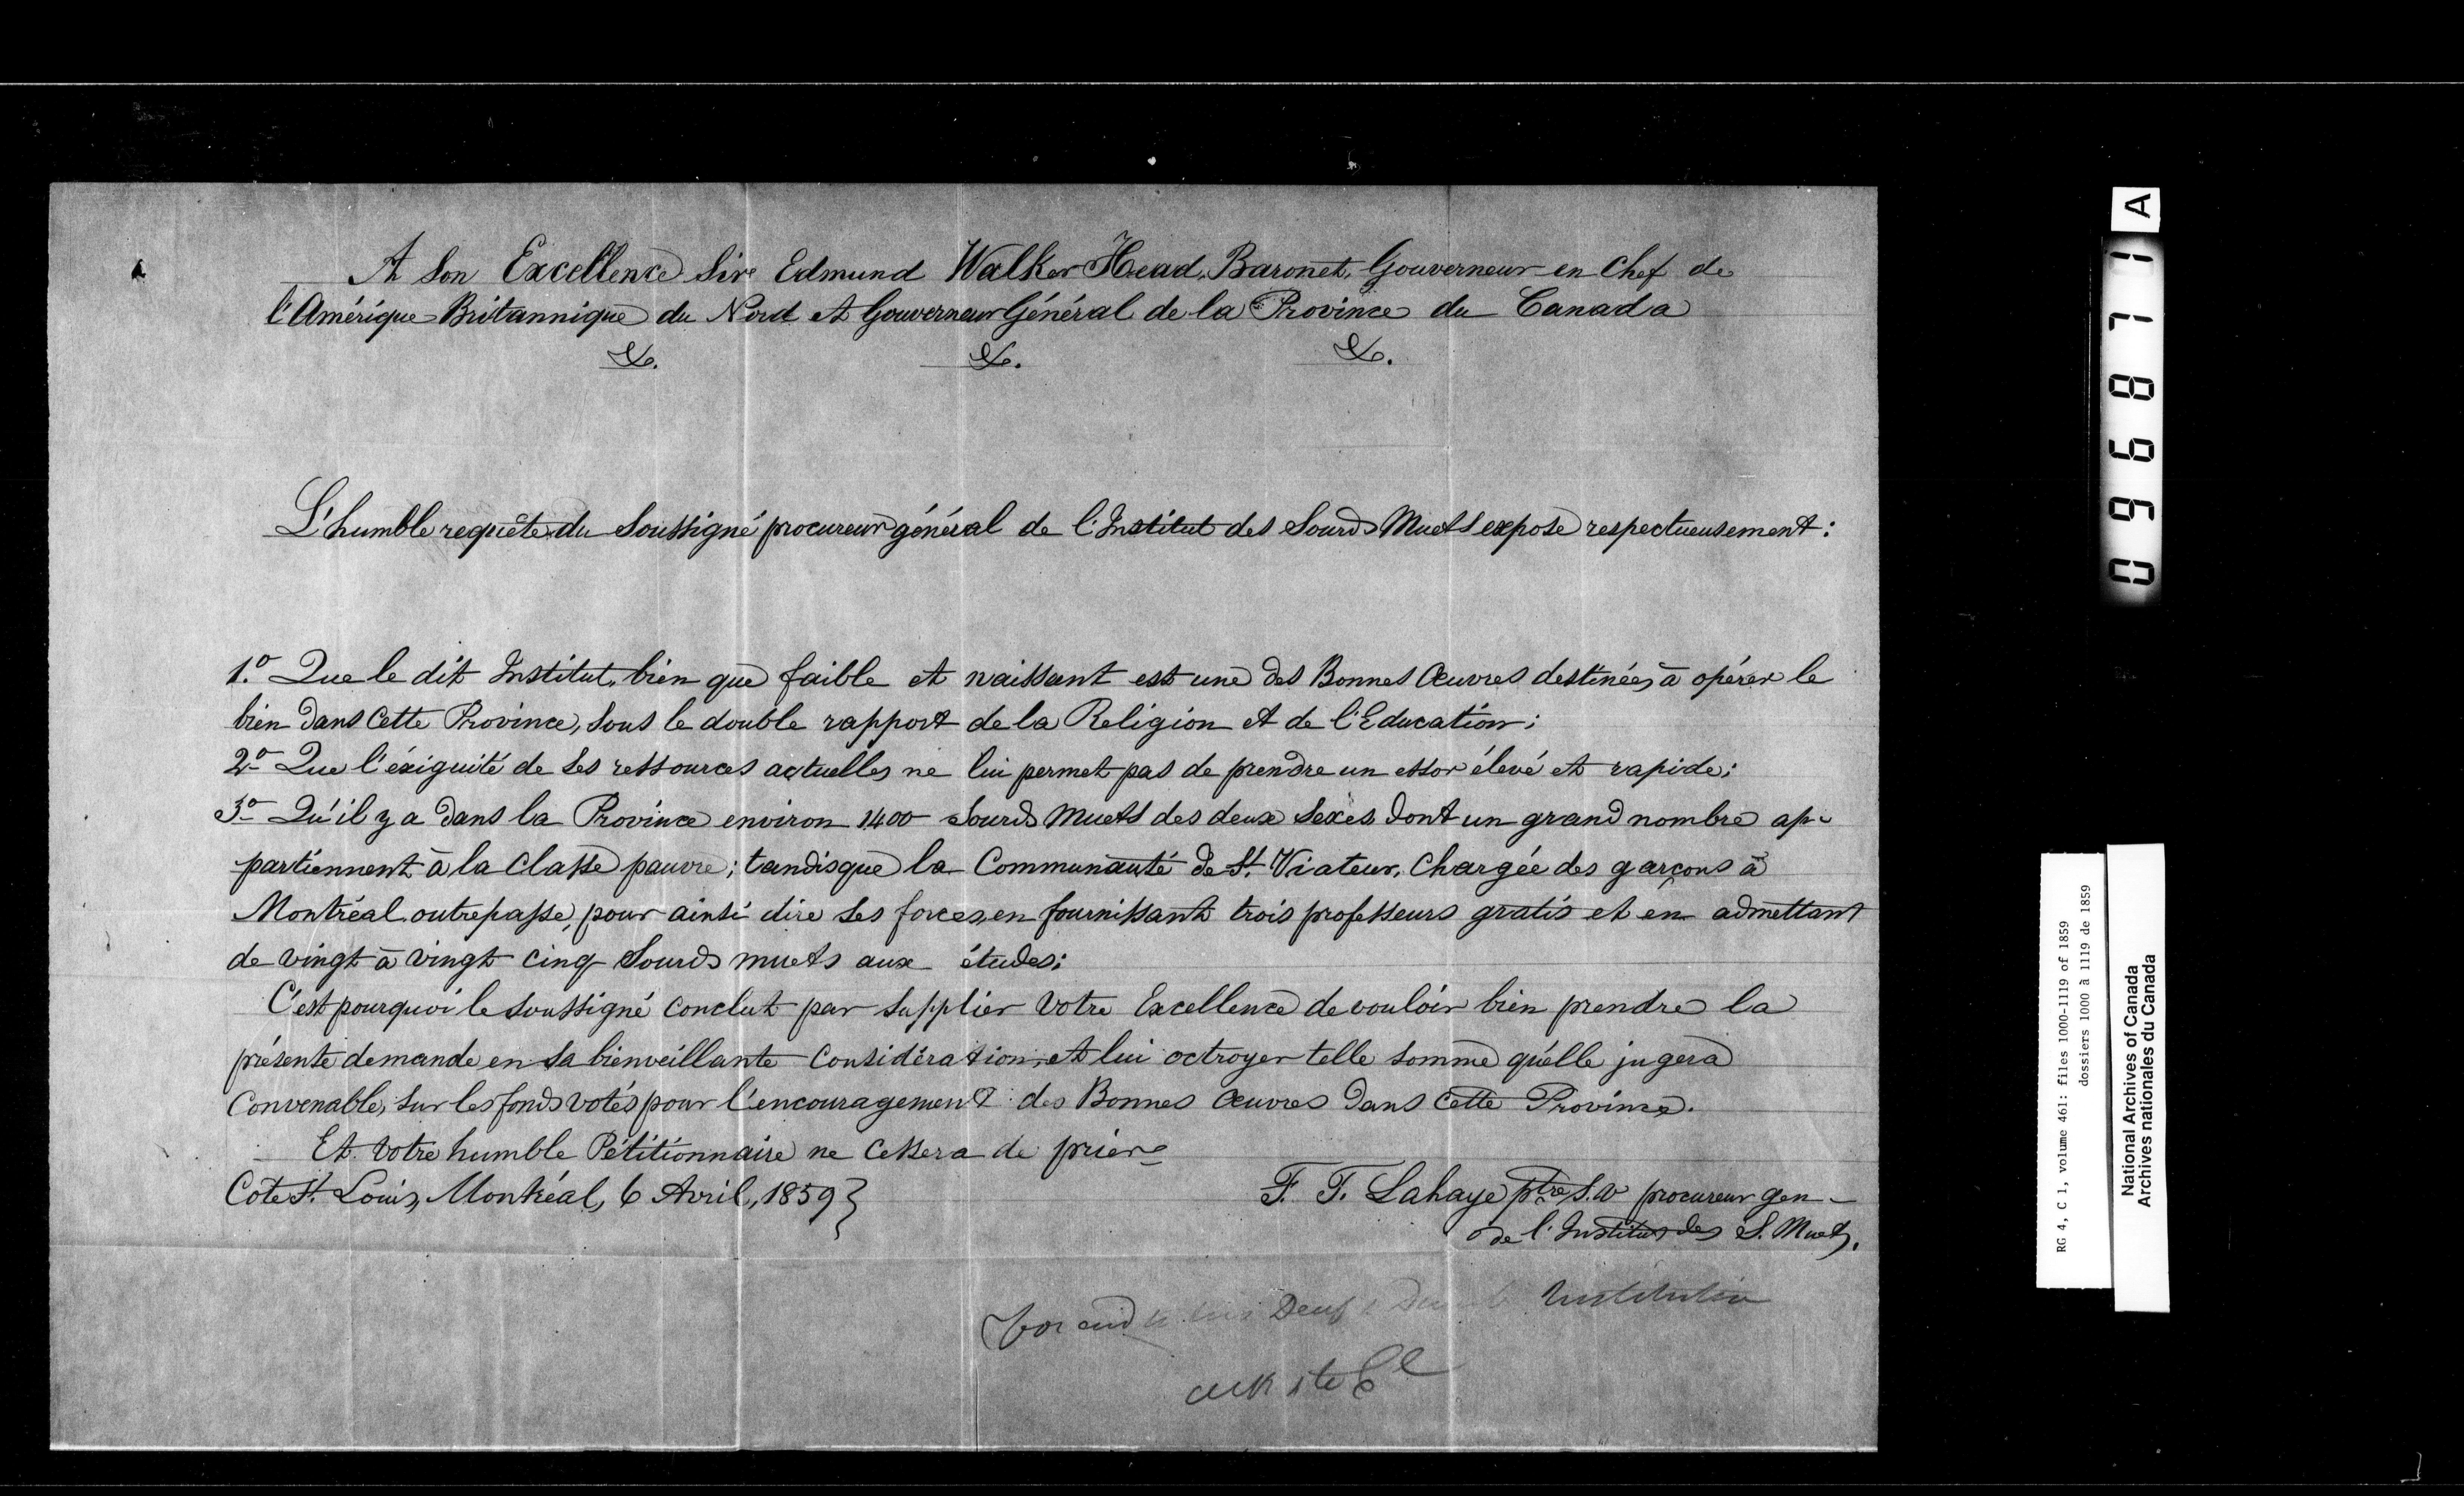 A Son Excellence Sire Edmund Walker Head, Baronet, Gouverneur en Chef de
l'Amérique Britannique du Nord et Gouverneur Général de la Province du Canada
&. &. &.
L'humble requête du Soussigné procureur général de l'Institut des Sourds Muets expose respectueusement:
1.º Que le dit Institut, bien que faible et naissant est une des Bonnes Œuvres destinées à opérer le
bien dans Cette Province, sous le double rapport de la Religion et de l'Education;
2º Que l'éxiguité de ses ressources actuelles ne lui permet pas de prendre un essor élevé et rapide;
3º Qu'il y a dans la Province environ 1400 Sourds Muets des deux Sexes dont un grand nombre ap-
partiennent à la Classe pauvre; tandisque la Communauté de St. Viateur, Chargée des garçons à
Montréal outrepasse, pour ainsi dire ses forces, en fournissant trois professeurs gratis et en admettant
de vingt à vingt cinq Sourds muets aux études;
C'est pourquoi le soussigné conclut par supplier Votre Excellence de vouloir bien prendre la
présente demande en sa bienveillante Considération, et lui octroyer telle somme qu'elle jugera
Convenable, sur les fonds votés pour l'encouragement des Bonnes Œuvres dans Cette Province.
Et Votre humble Pétitionnaire ne Cessera de prier
Cote St. Louis, Montréal, 6 Avril, 1859}
F. T. Lahaye ptre S.V procureur gen-
de l'Institut des S. Muets.
for aid Deaf Institution
A
096871
RG 4, C 1, volume 461: files 1000-1119 of 1859
dossiers 1000 à 1119 de 1859
National Archives of Canada
Archives nationales du Canada